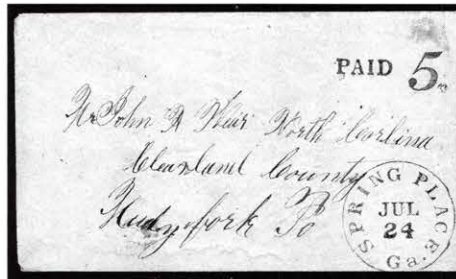 PAID 5
Mr John R Weir North Carlina
Cleavland County
Mudy fork Po
SPRING PLACE
JUL
24
Ga.